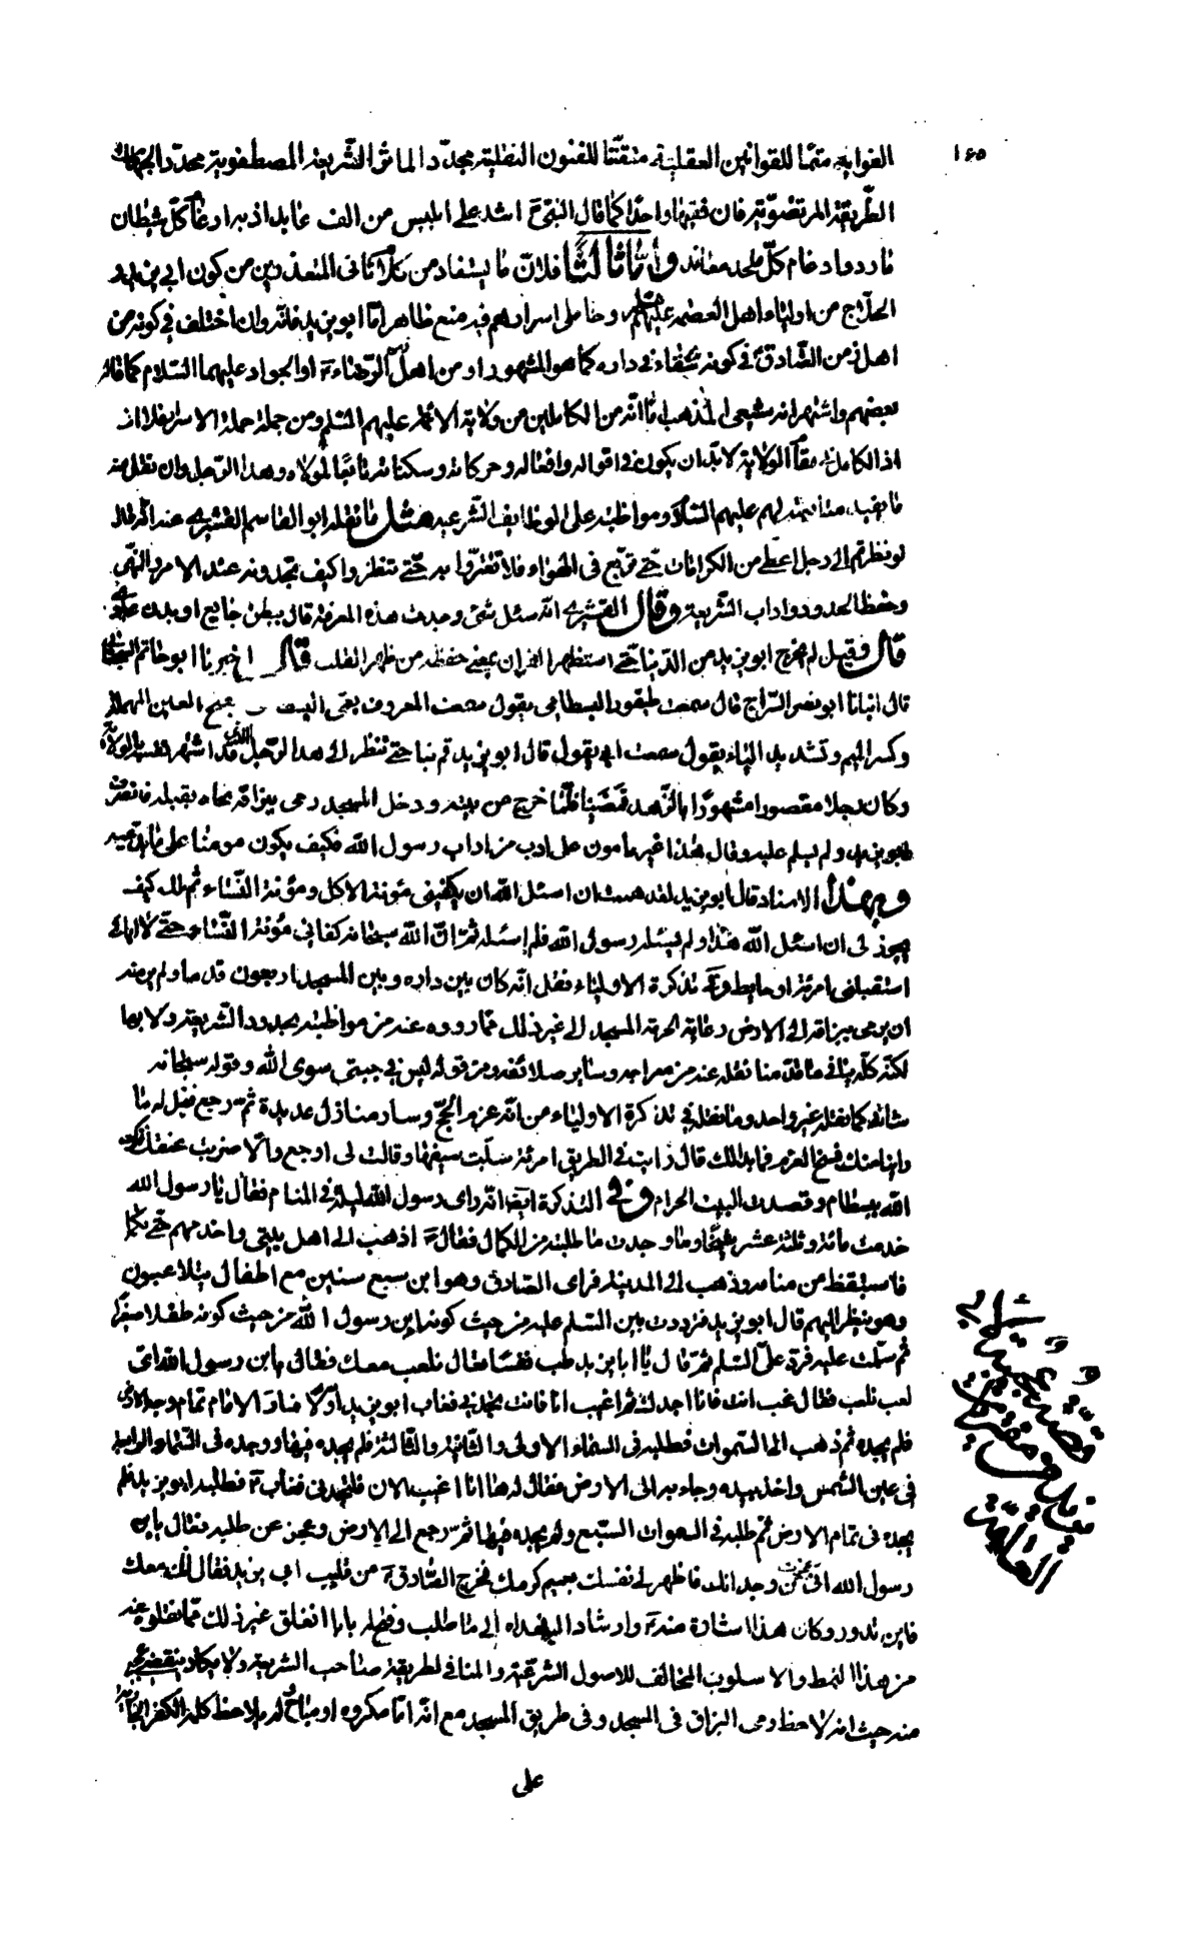 ١٦٥
الغوايه متمّا للقوانين العقلية متقنّا للفنون النقلية مجدّد الماثر الشّريعة المصطفوية محدّد الجهات
الطّريقة المرتضويّة فان فقيها واحدا كما قال النبى ص اشد على ابليس من الف عابد اذ به ارغام كلّ شيطان
مارد وادغام كلّ ملحد معاند وأمّا ثالثًا فلان ما يستفاد من كلامات المتعذرين من كون ابي يزيد
الحلّاج من اولياء اهل العصمة عليهم السلام وحاملى اسرارهم فيه منع ظاهر امّا ابو يزيد فانه وان اختلف في كونه من
اهل زمن الصّادق ع في كونه سقاء في داره كما هو المشهور او من اهل زمن الرّضا ع او الجواد عليهما السّلام كما قاله
بعضهم واشتهر انه شيعى المذهب امّا انّه من الكاملين من ولاية الائمة عليهم السّلم ومن جملة حملة الاسرار فلا اذ
اذ الكامل في مقام الولاية لا بدّ ان يكون في اقواله وافعاله وحركاته وسكناته تابعًا لمولاه وهذا الرّجل وان نقل منه
ما يفيد متابعته لهم عليهم السّلام ومواظبته على الوظايف الشّرعيه مثل ما نقله ابو القاسم القشيرى عنه انّه قال
لو نظرتم الى رجل اعطى من الكرامات حتّى تربّع فى الهواء فلا تغترّوا به حتّى تنظروا كيف تجدونه عند الامر والنّهى
وحفظ الحدود واداب الشّريعة وقال القشيرى انّه سئل باىّ شئ وجدت هذه المعرفة قال ببطن جايع او بدن عار و
قال وقيل لم يخرج ابو يزيد من الدّنيا حتّى استظهر القران يعنى حفظه من ظهر القلب قال اخبرنا ابو حاتم السجستانى
قال انبانا ابو نصر السّراج قال سمعت طيفور البسطامى يقول سمعت المعروف بعمى البسطامى بفتح العين المهملة
وكسر الميم وتشديد الياء يقول سمعت ابى يقول قال ابو يزيد قم بنا حتّى ننظر الى هذا الرّجل الذى قد اشهر نفسه بالولاية
وكان رجلا مقصورا مشهورًا بالزّهد فمضينا فلمّا خرج من بيته ودخل المسجد رمى ببزاقه تجاه القبلة فانصرف
ابو يزيد ولم يسلم عليه وقال هذا غير مامون على ادب من اداب رسول الله فكيف يكون مومنا على ما يدّعيه
وبهذا الاسناد قال ابو يزيد لقد هممت ان اسئل الله ان يكفينى مؤنة الاكل ومؤنة النّساء ثم قلت كيف
يجوز لى ان اسئل الله هذا ولم يسئله رسول الله فلم اسئله ثمّ انّ الله سبحانه كفانى مؤنة النّساء حتّى لا ابالى
استقبلنى امرئة او حايط وعن تذكرة الاولياء نقل انّه كان بين داره وبين المسجد اربعون قدما ولم يرمنه
ان يرمى ببزاقه الى الارض رعاية لحرمة المسجد الى غير ذلك ممّا رووه عنه من مواظبته بحدود الشّريعة وادابها
لكنّه كلّه ينافى ما قدّمنا نقله عنه من معراجه وساير صلائفه ومن قوله ليس في جبتى سوى الله وقوله سبحانى
ما اعظم شانى كما نقله غير واحد وما نقله في تذكرة الاولياء من انّه عزم الحجّ وسار منازل عديدة ثم رجع فقيل له ما
راينا منك فسخ العزم فما بدا لك قال رايت في الطريق امرئة سلّت سيفها وقالت لى ارجع والّا ضربت عنقك تركت
الله ببسطام وقصدت البيت الحرام وفى التذكرة ايضا انّه راى رسول الله ليلة في المنام فقال يا رسول الله
خدمت مائة وثلثة عشر شيخًا وما وجدت ما طلبته من الكمال فقال ص اذهب الى اهل بيتى واخدمهم حتّى
فاستيقظ من منامه وذهب الى المدينة فراى الصّادق وهو ابن سبع سنين مع اطفال يتلاعبون
وهو ينظر اليهم قال ابو يزيد فترددت بين السّلم عليه من حيث كونه ابن رسول الله ومن حيث كونه طفلا صغيرا
ثم سلّمت عليه فردّ علىّ السّلم ثمّ قال يا ابا يزيد طب نفسًا فقال نلعب معك فقال يابن رسول الله اىّ
لعب نلعب فقال غب انت فانا اجدك ثم اغيب انا فانت تجدنى فغاب ابو يزيد اوّلا فدار الامام تمام وجه الارض
فلم يجده ثم ذهب الى السّموات فطلبه فى السماء الاولى والثّانية والثّالثة فلم يجده فيها ووجده فى السّماء الرابعة
فى عين الشّمس واخذ بيده وجاء به الى الارض فقال له هاانا اغيب الان فلتجدنى فغاب ع فطلبه ابو يزيد فلم
يجده فى تمام الارض ثم طلبه في السموات السّبع ولم يجده فيها ثمّ رجع الى الارض وعجز عن طلبه فقال يابن
رسول الله انّى عجزت عن وجدانك فاظهر لى نفسك بعميم كرمك فخرج الصّادق ع من قليب ابى يزيد فقال انّى معك
فاين تدور وكان هذا اشارة منه ع وارشاد اليه فهداه الى ما طلب وفتح له بابا انغلق غير ذلك ممّا نقلوه عنه
من هذا النمط والاسلوب المخالف للاصول الشّرعية والمنافى لطريقة صاحب الشريعة ولا يكاد ينقضى عجبى
منه حيث انه لاحظ رمى البزاق فى المسجد وفى طريق المسجد مع انّه امّا مكروه او مباح ولم يلاحظ كلمة الكفر الجارية
على